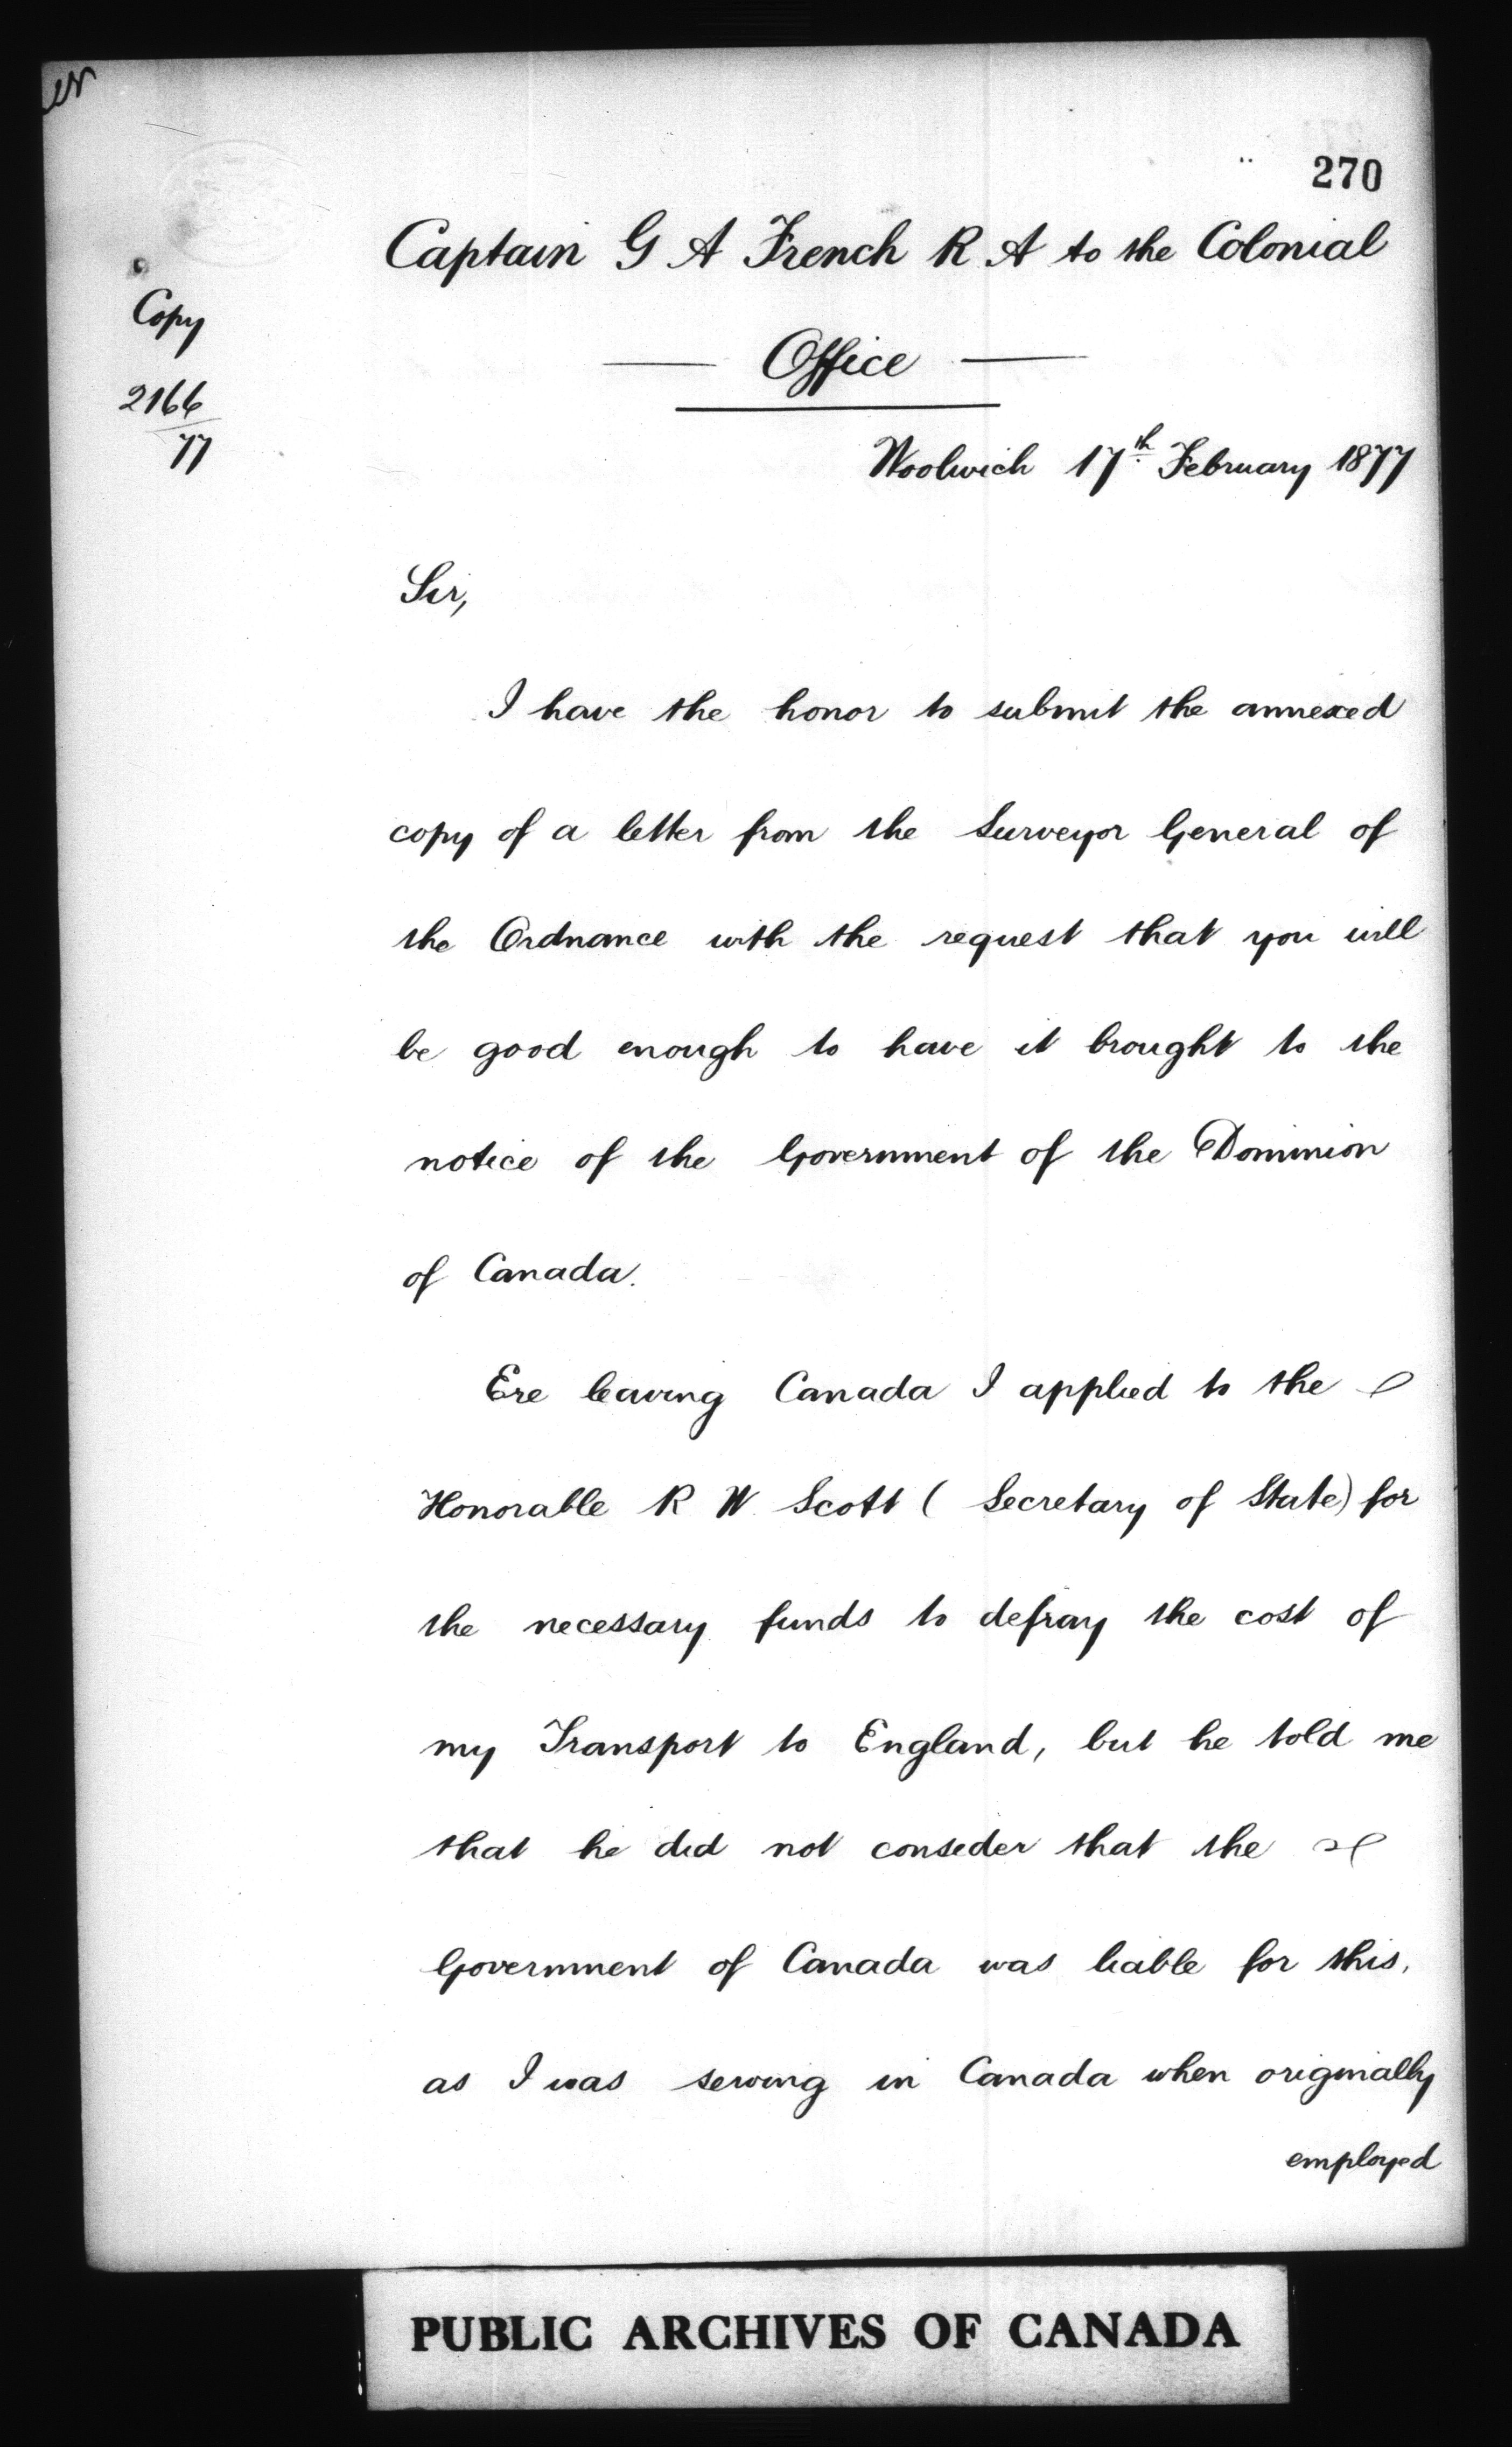 270
Captain G A French R A to the Colonial
Office
Copy
2166
77
Woolwich 17th February 1877
Sir,
I have the honor to submit the annexed
copy of a letter from the Surveyor General of
the Ordnance with the request that you will
be good enough to have it brought to the
notice of the Government of the Dominion
of Canada.
Ere leaving Canada I applied to the
Honorable R W Scott ( Secretary of State) for
the necessary funds to defray the cost of
my Transport to England, but he told me
that he did not consider that the
Government of Canada was liable for this,
as I was serving in Canada when originally
employed
PUBLIC ARCHIVES OF CANADA